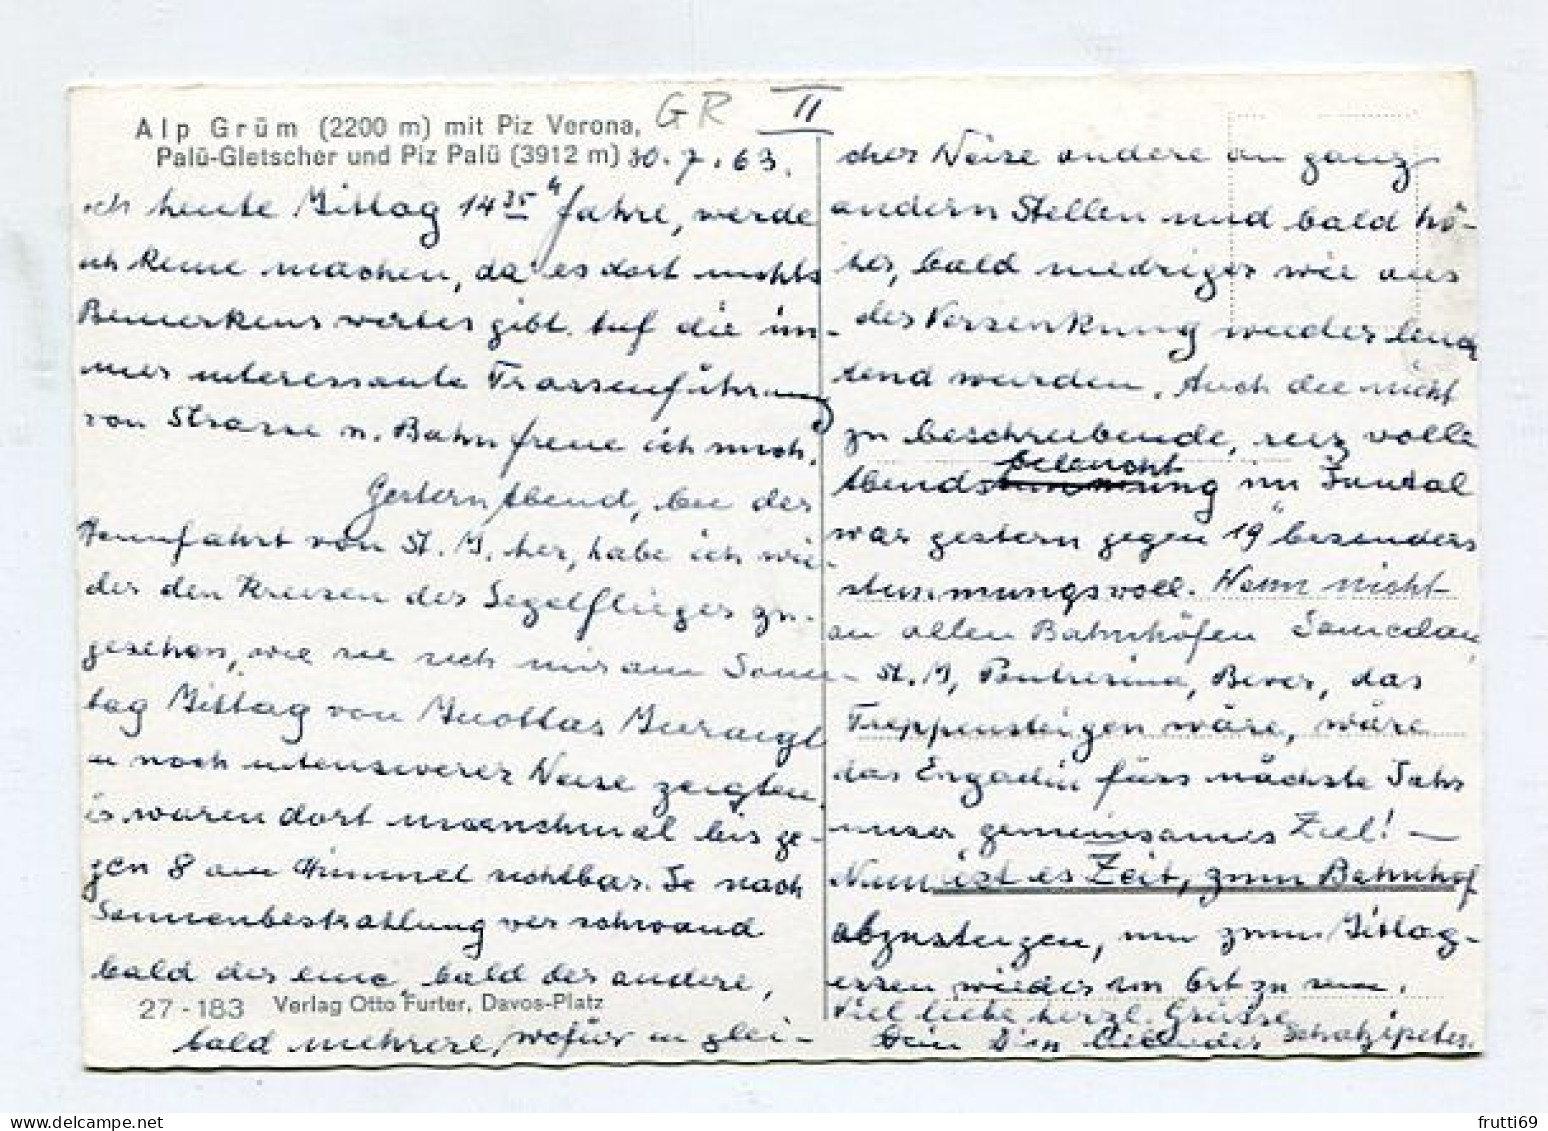 GR II
Alp Grüm (2200 m) mit Piz Verona,
Palü-Gletscher und Piz Palü (3912 m) 30.7.63.
ich heute Mittag 14 35 h fahre, werde
ich keine machen, da es dort nichts
Bemerkenswertes gibt. Auf die im-
mer interessante Trassenführung
von Strasse u. Bahn freue ich mich.
Gestern Abend, bei der
Heimfahrt von St. M. her, habe ich wie-
der den Kreisen der Segelflieger zu-
gesehen, wie sie sich mir am Sonn-
tag Mittag von Muottas Muraigl
in noch intensiverer Weise zeigten.
Es waren dort manchmal bis ge-
gen 8 am Himmel sichtbar. Je nach
Sonnenbestrahlung verschwand
bald der eine, bald der andere,
27-183 Verlag Otto Furter, Davos-Platz
bald mehrere, wofür in glei-
cher Weise andere an ganz
andern Stellen und bald hö-
her, bald niedriger wie aus
der Versenkung wieder leuch
tend wurden. Auch die nicht
zu beschreibende, reizvolle
beleucht
Abendstimmung im Inntal
war gestern gegen 19 h besonders
stimmungsvoll. Wenn nicht
an allen Bahnhöfen Samedan,
St. M, Pontresina, Bever, das
Treppensteigen wäre, wäre
das Engadin fürs nächste Jahr
unser gemeinsames Ziel! —
Nun ist es Zeit, zum Bahnhof
abzusteigen, um zum Mittag-
essen wieder im Ort zu sein.
Viel liebe herzl. Grüsse
Dein Dich liebender Schatzipeter.
frutti69